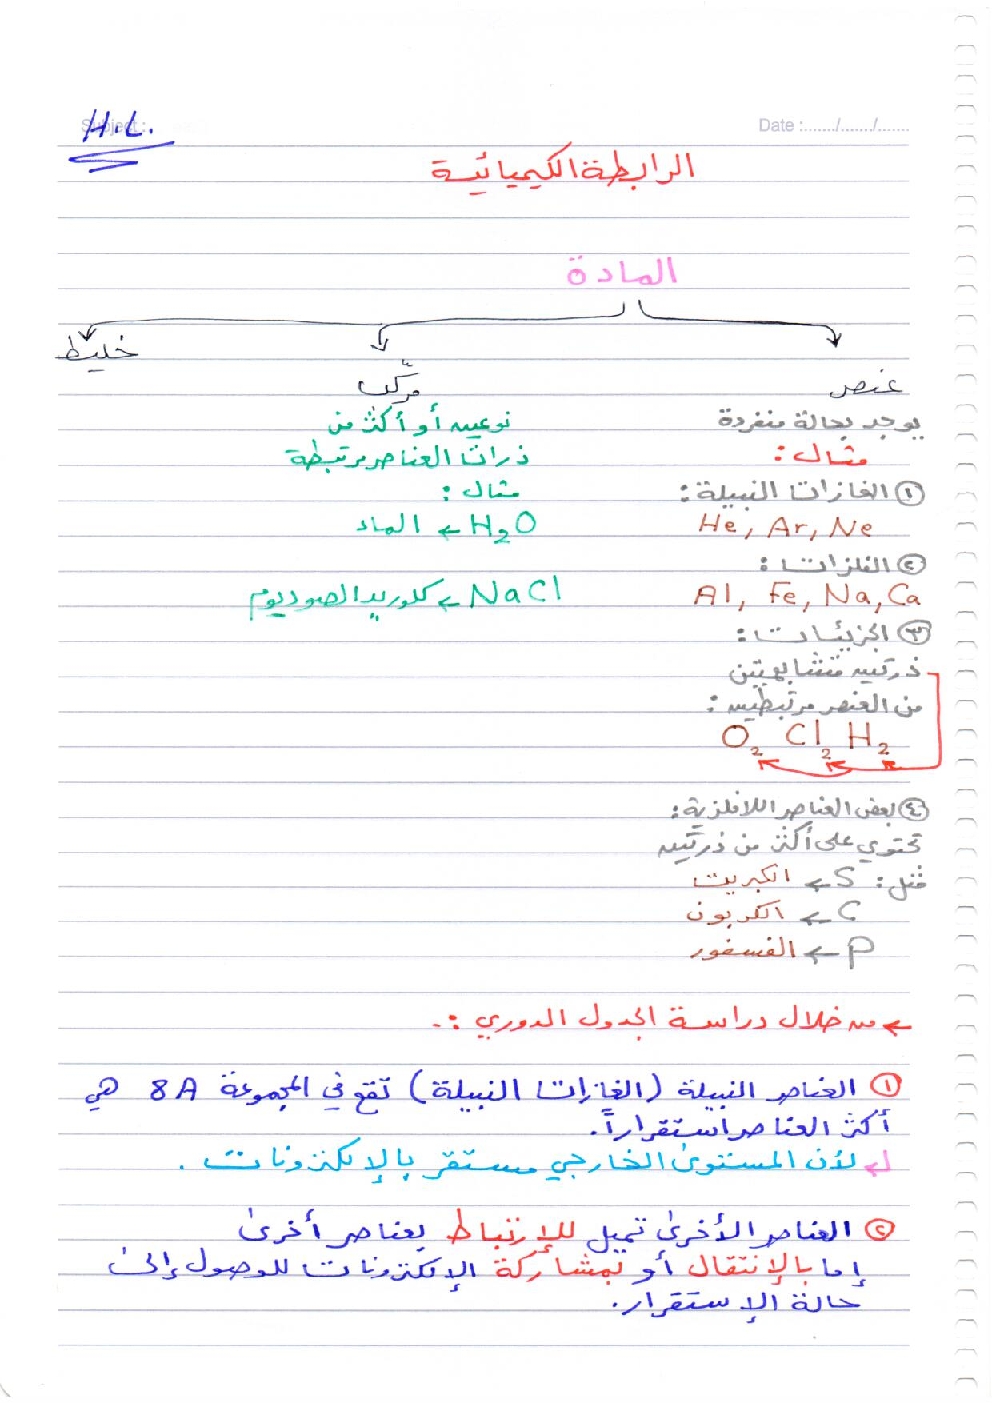 H.L.
Subject :
Date :......./......./.......
الرابطة الكيميائية
المادة
عنصر
مركّب
خليط
يوجد بحالة منفردة
مثال :
① الغازات النبيلة :
He, Ar, Ne
② الفلزات :
Al, Fe, Na, Ca
③ الجزيئات :
ذرتين متشابهتين
من العنصر مرتبطين :
O2 Cl2 H2
④ بعض العناصر اللافلزية :
تحتوي على أكثر من ذرتين
مثل : S ← الكبريت
C ← الكربون
P ← الفسفور
نوعين أو أكثر من
ذرات العناصر مرتبطة
مثال :
H2O ← الماء
NaCl ← كلوريد الصوديوم
← من خلال دراسة الجدول الدوري :.
① العناصر النبيلة (الغازات النبيلة) تقع في المجموعة 8A هي
أكثر العناصر استقراراً.
لأن المستوى الخارجي مستقر بالإلكترونات .
② العناصر الأخرى تميل للإرتباط بعناصر أخرى
إما بالإنتقال أو بمشاركة الإلكترونات للوصول إلى
حالة الإستقرار.